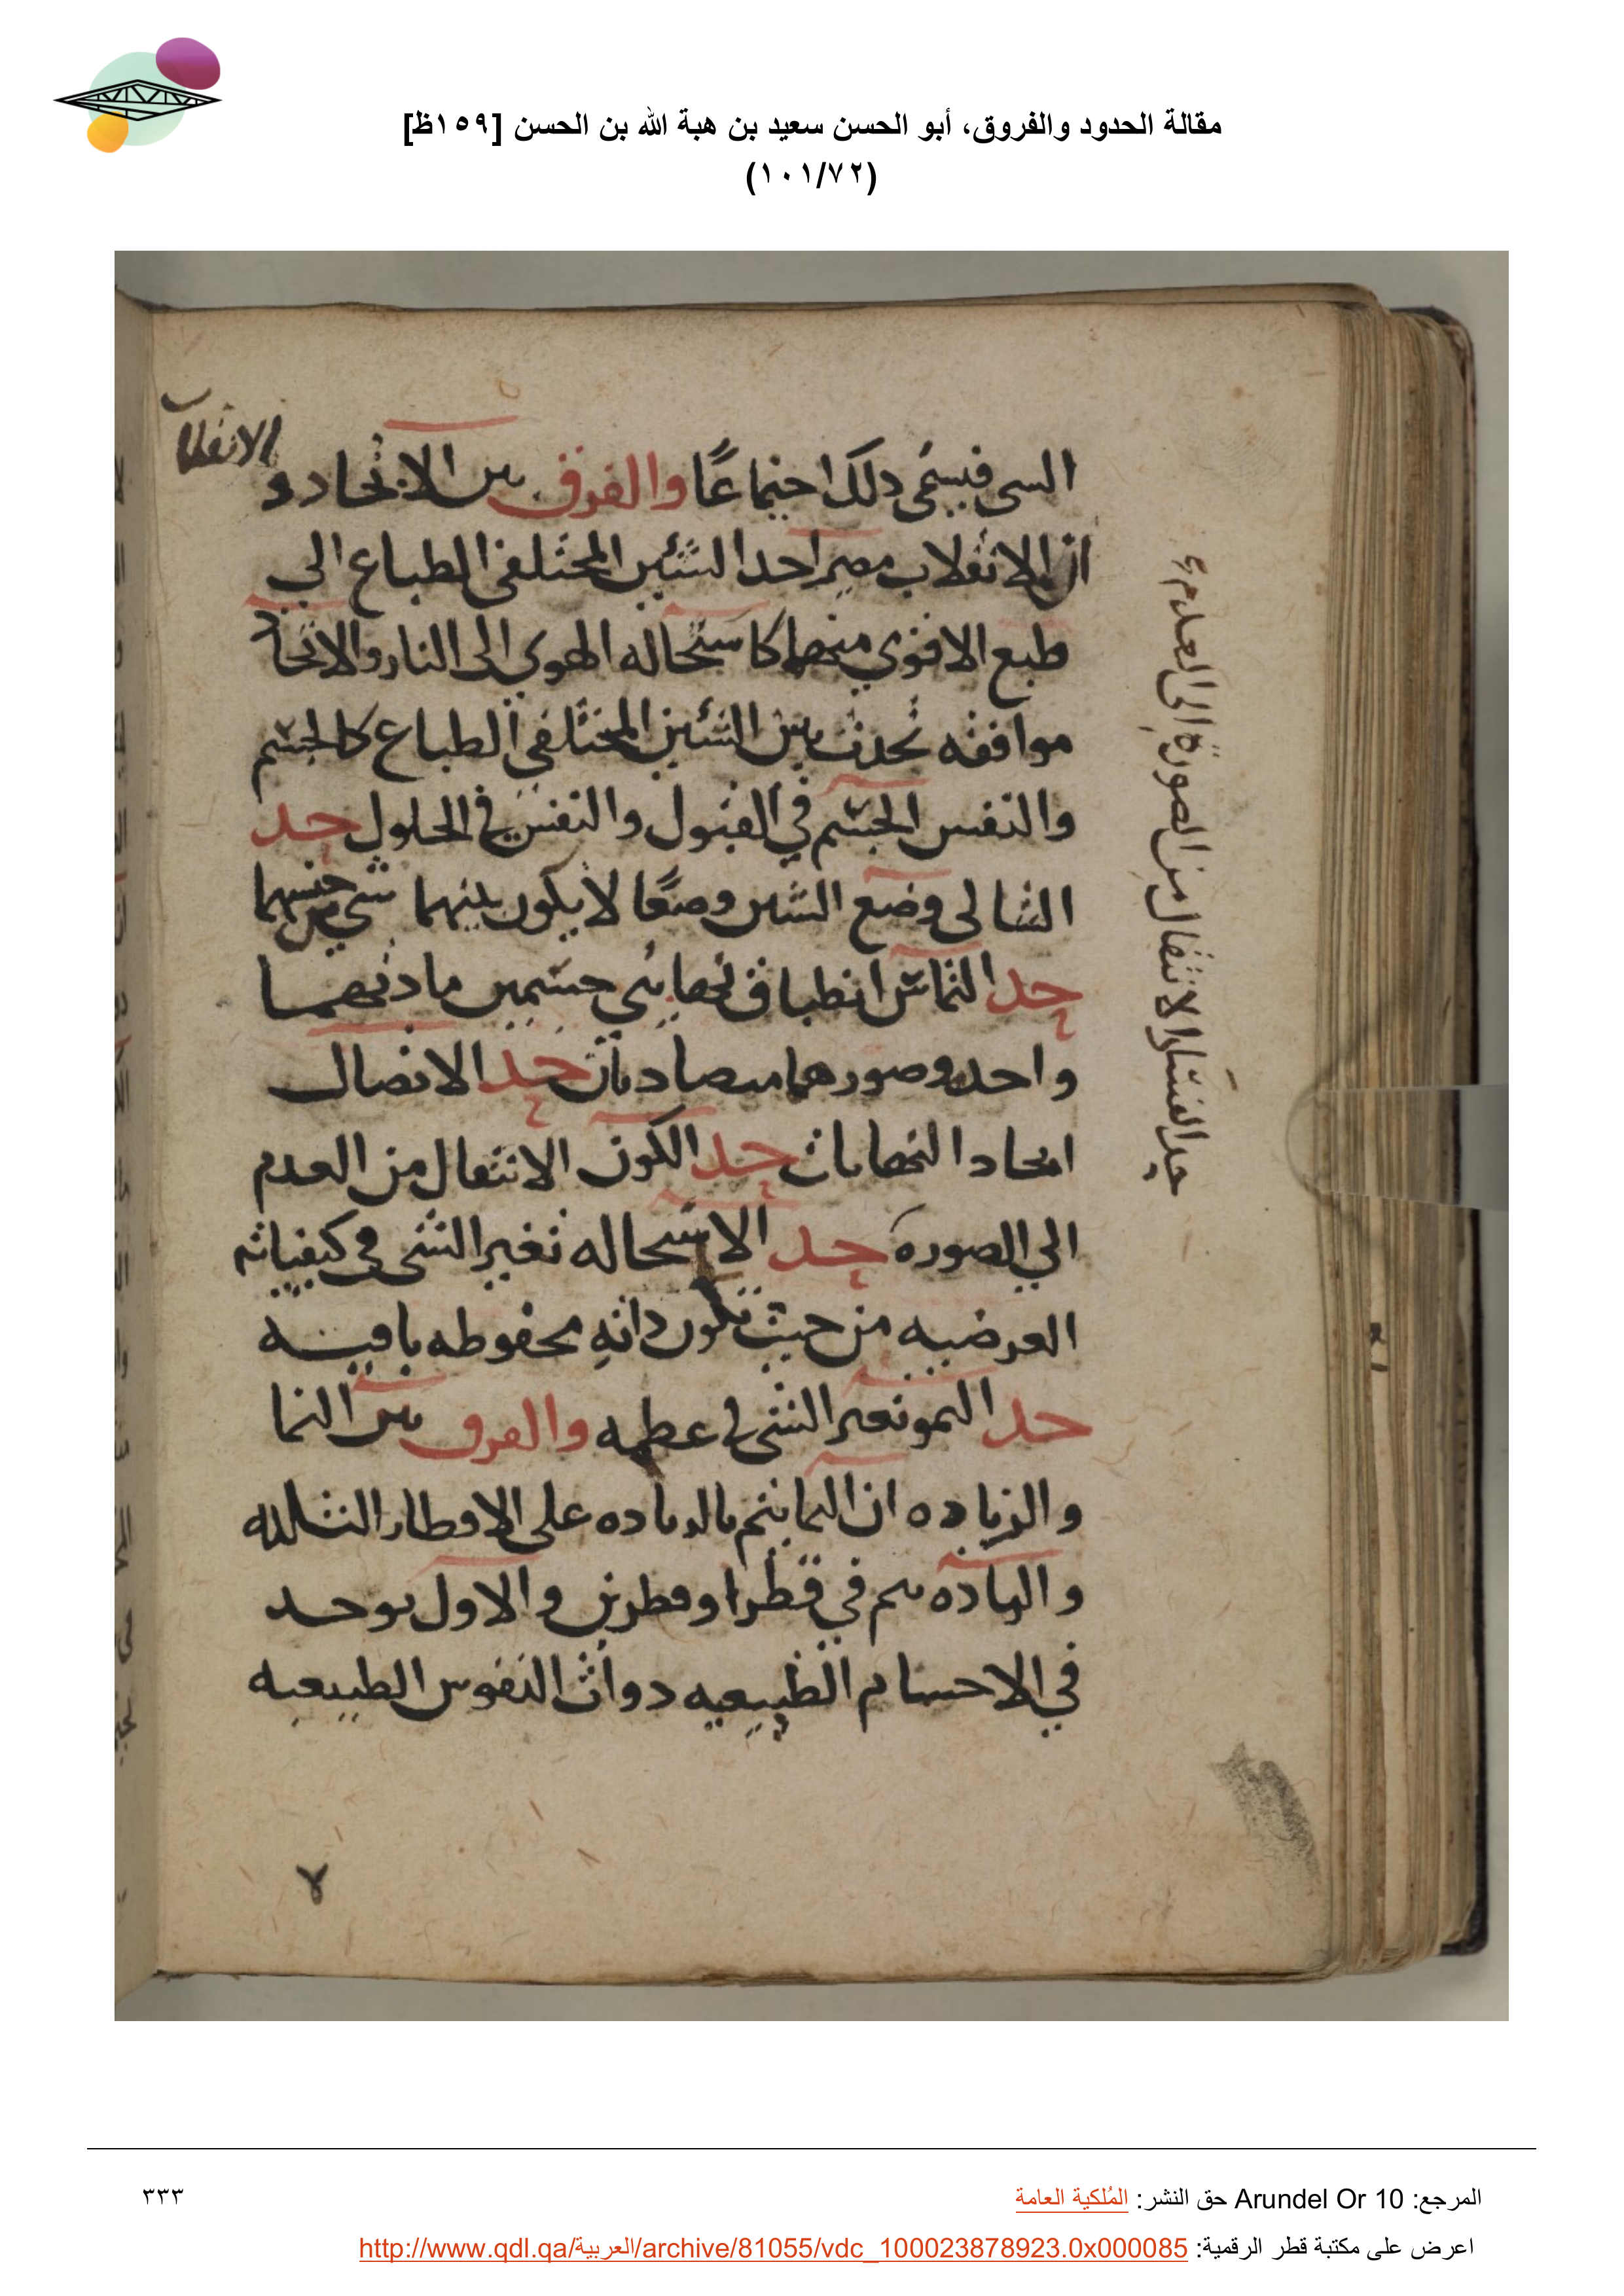 مقالة الحدود والفروق، أبو الحسن سعيد بن هبة الله بن الحسن [١٥٩ظ]
(١٠١/٧٢)
السى فيسمى دلك اجتماعًا والفرق بين الاتحاد و الانقلاب
ان الانقلاب مصير احد الشئين المختلفى الطباع الى
طبع الاقوي منهما كاستحاله الهوي الى النار والاتحاد
موافقه تحدث بين الشئين المختلفي الطباع كالجسم
والنفس الجسم في القبول والنفس في الحلول حد
التتالى وضع الشين وضعًا لا يكون بينهما شي من جنسهما
حد التماس انطباق نهايتي جسمين مادتهما
واحده وصورهما متضادتان حد الاتصال
اتحاد النهايات حد الكون الانتقال من العدم
الي الصوره حد الاستحاله تغير الشى في كيفياته
العرضيه من حيث تكون داته محفوطه باقيه
حد النمو تغير الشى في عطمه والفرق بين النما
والزياده ان النما يتم بالزياده على الاقطار الثلثه
والزياده تتم في قطر او قطرين والاول يوجد
في الاجسام الطبيعيه دوات النفوس الطبيعيه
حد الفساد الانتقال من الصورة الى العدم
المرجع: Arundel Or 10 حق النشر: المُلكية العامة
٣٣٣
اعرض على مكتبة قطر الرقمية: http://www.qdl.qa/العربية/archive/81055/vdc_100023878923.0x000085